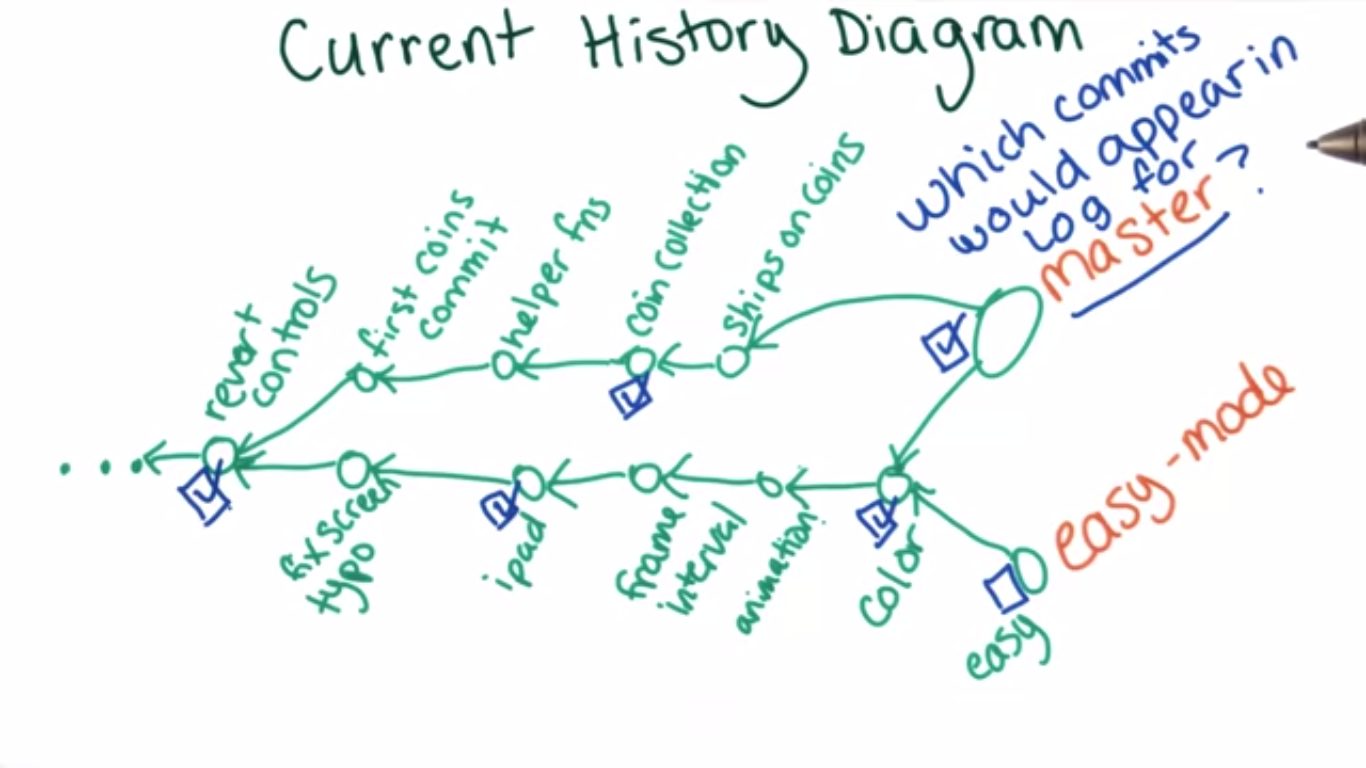 Current History Diagram
which commits
would appear in
log for
master?
revert
controls
first coins
commit
helper fns
coin collection
ships on coins
...
fix screen
typo
ipad
frame
interval
animation
color
easy
easy-mode